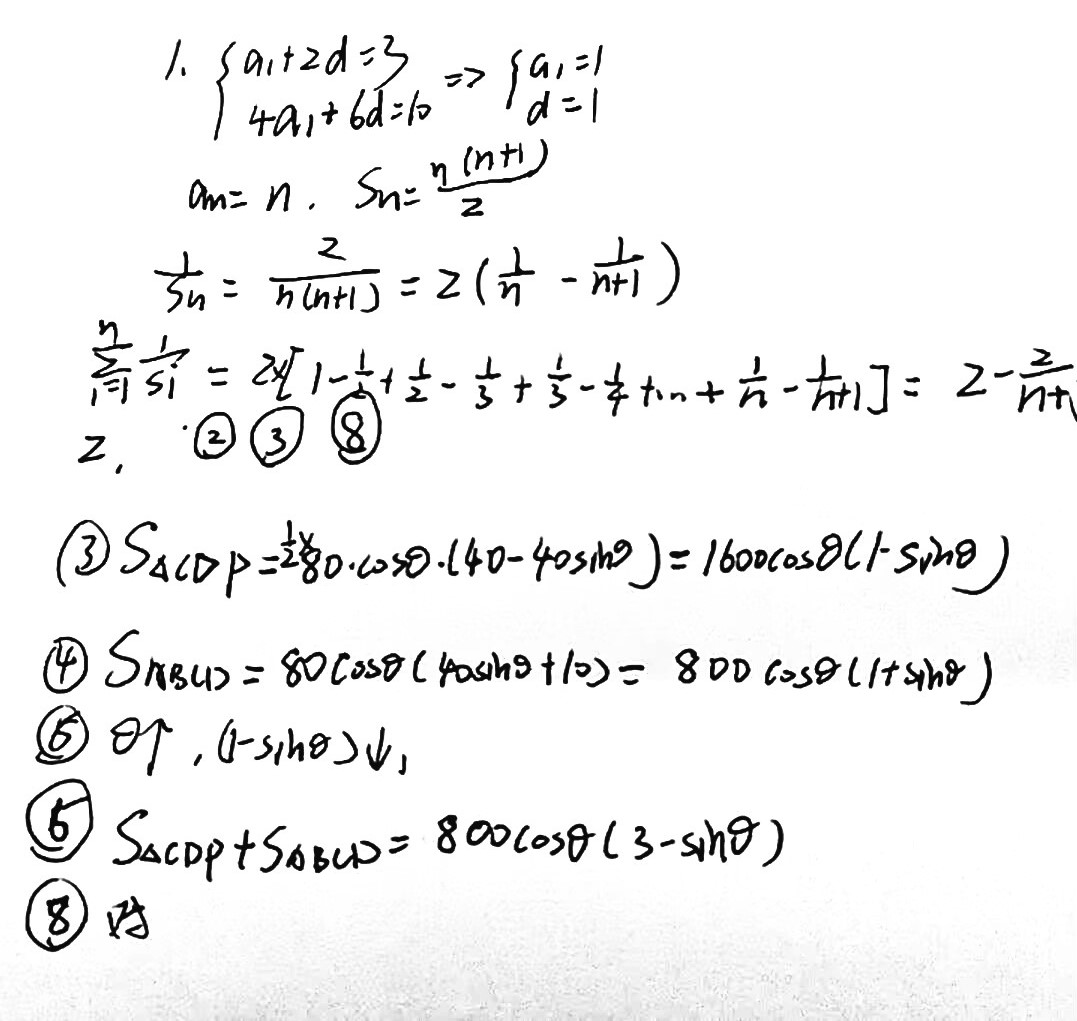 1. { a₁+2d=3 => { a₁=1
4a₁+6d=10 d=1
an= n. Sn= n(n+1)/2
1/Sn = 2/n(n+1) = 2(1/n - 1/n+1)
n∑i=1 1/Si = 2×[1-1/2+1/2-1/3+1/3-1/4+...+1/n-1/n+1] = 2-2/n+1
2. ② ③ ⑧
③ S△CDP=1/2×80·cosθ·(40-40sinθ)=1600cosθ(1-sinθ)
④ SABCD=80cosθ(40sinθ+10)= 800cosθ(1+sinθ)
⑤ θ↑, (1-sinθ)↓,
⑥ S△CDP+S△BCD= 800cosθ(3-sinθ)
⑧ 对